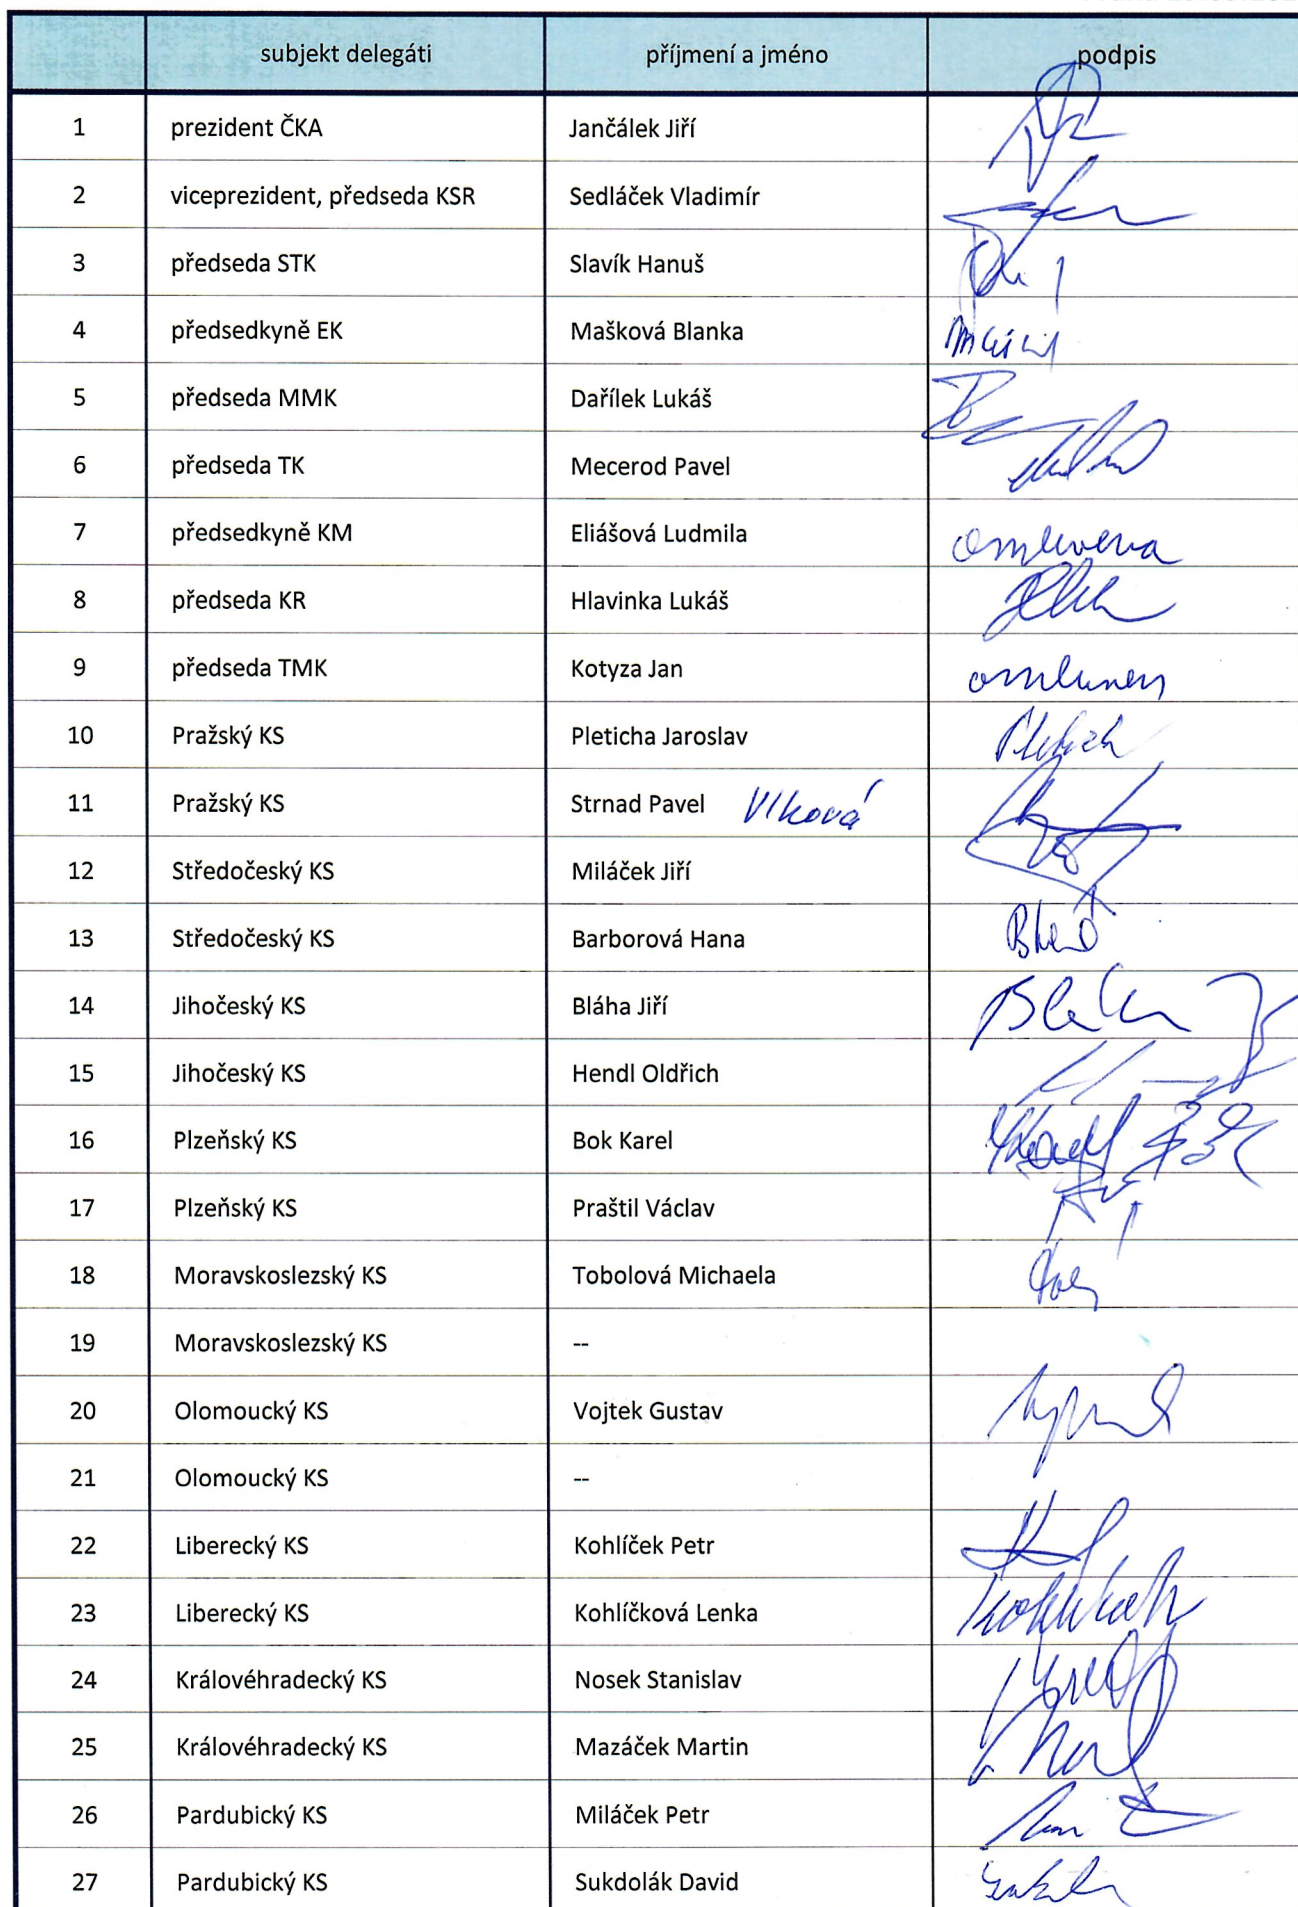 subjekt delegáti příjmení a jméno podpis
1 prezident ČKA Jančálek Jiří
2 viceprezident, předseda KSR Sedláček Vladimír
3 předseda STK Slavík Hanuš
4 předsedkyně EK Mašková Blanka
5 předseda MMK Dařílek Lukáš
6 předseda TK Mecerod Pavel
7 předsedkyně KM Eliášová Ludmila omluvena
8 předseda KR Hlavinka Lukáš
9 předseda TMK Kotyza Jan omluven
10 Pražský KS Pleticha Jaroslav
11 Pražský KS Strnad Pavel Vlková
12 Středočeský KS Miláček Jiří
13 Středočeský KS Barborová Hana
14 Jihočeský KS Bláha Jiří
15 Jihočeský KS Hendl Oldřich
16 Plzeňský KS Bok Karel
17 Plzeňský KS Praštil Václav
18 Moravskoslezský KS Tobolová Michaela
19 Moravskoslezský KS --
20 Olomoucký KS Vojtek Gustav
21 Olomoucký KS --
22 Liberecký KS Kohlíček Petr
23 Liberecký KS Kohlíčková Lenka
24 Královéhradecký KS Nosek Stanislav
25 Královéhradecký KS Mazáček Martin
26 Pardubický KS Miláček Petr
27 Pardubický KS Sukdolák David